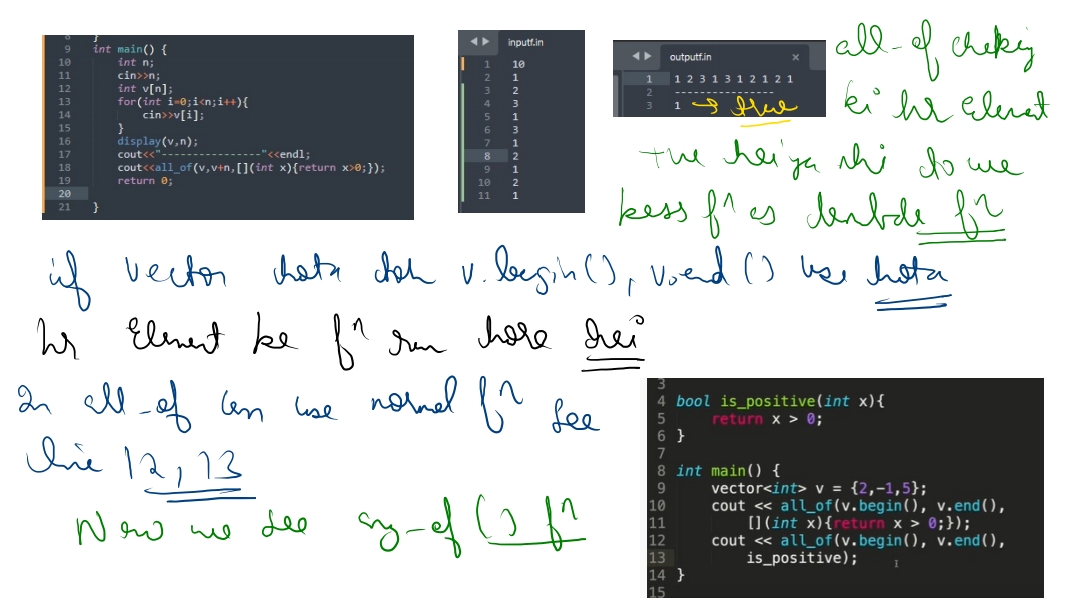 8 }
9 int main() {
10 int n;
11 cin>>n;
12 int v[n];
13 for(int i=0;i<n;i++){
14 cin>>v[i];
15 }
16 display(v,n);
17 cout<<"----------------"<<endl;
18 cout<<all_of(v,v+n,[](int x){return x>0;});
19 return 0;
20
21 }
inputf.in
1 10
2 1
3 2
4 3
5 1
6 3
7 1
8 2
9 1
10 2
11 1
outputf.in ×
1 1 2 3 1 3 1 2 1 2 1
2 ----------------
3 1 → true
all-of cheking
ki hr Element
+ve hei ya nhi do we
f^n as f^n
if vector hota toh v.begin(), v.end() use hota
hr Element ke f^n run hora hei
In all-of can use normal f^n see
line 12, 13
Now we see any-of() f^n
3
4 bool is_positive(int x){
5 return x > 0;
6 }
7
8 int main() {
9 vector<int> v = {2,-1,5};
10 cout << all_of(v.begin(), v.end(),
11 [](int x){return x > 0;});
12 cout << all_of(v.begin(), v.end(),
13 is_positive);
14 }
15